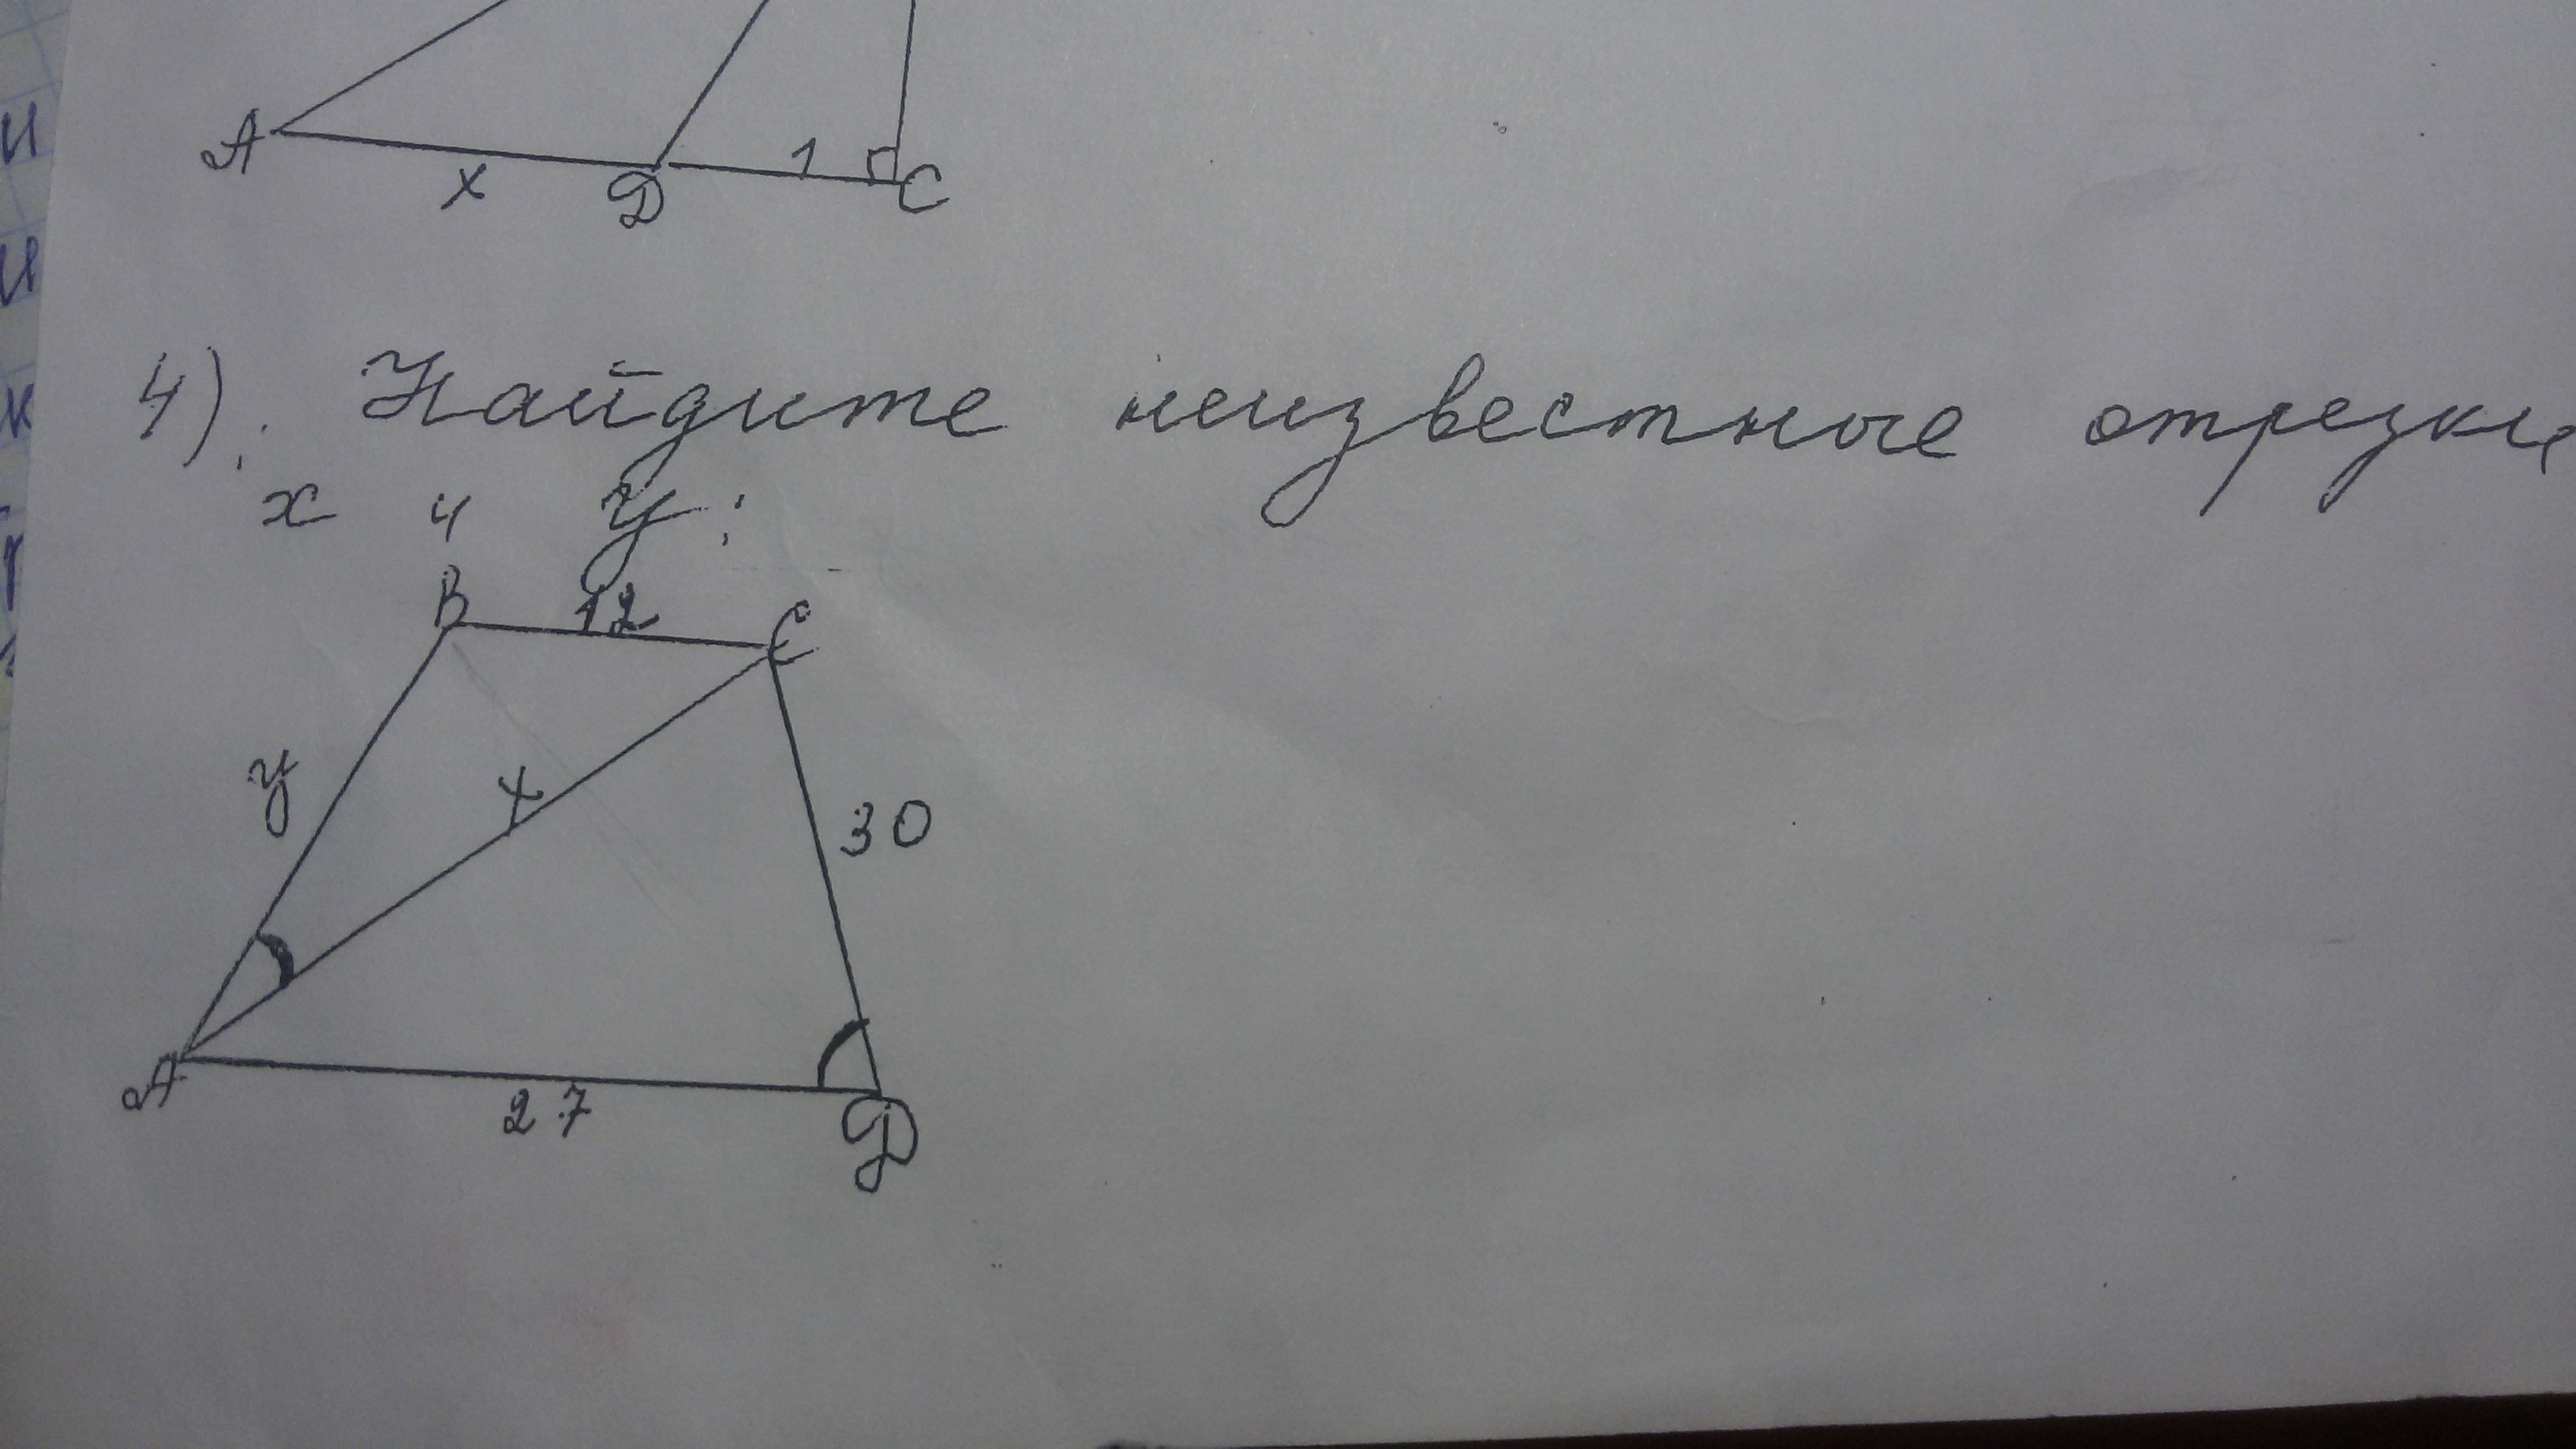 A x D 1 C
4). Найдите неизвестные отрезки
x и y:
B 12 C
y x 30
A 27 D